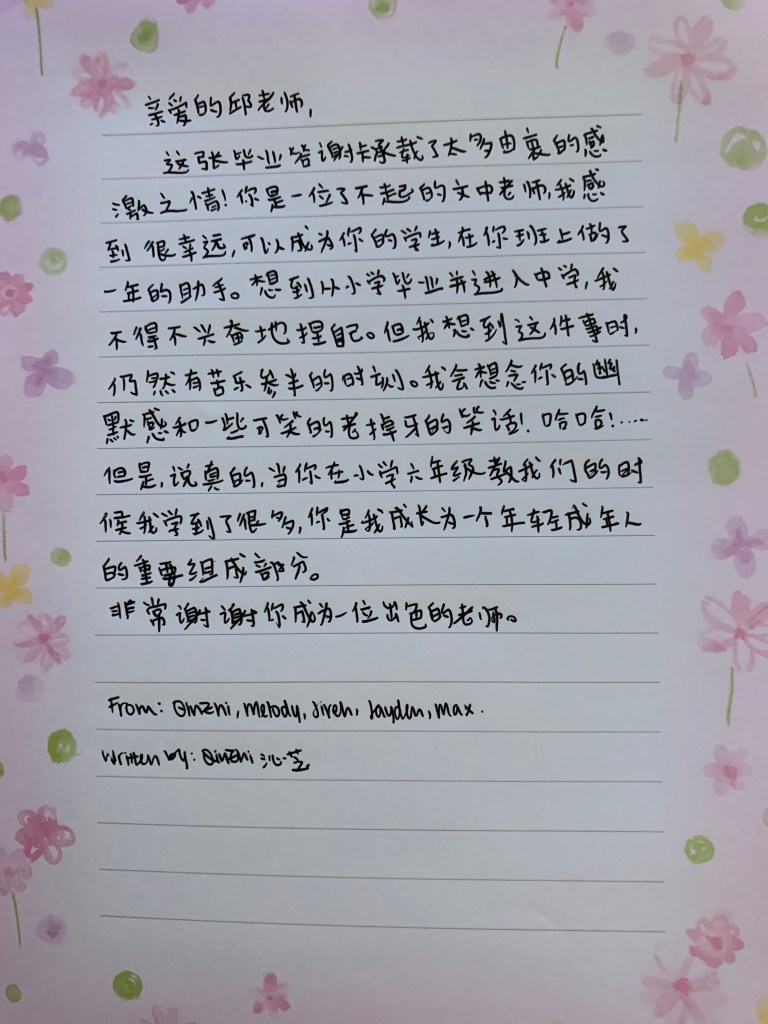 亲爱的邱老师,
这张毕业答谢卡承载了太多由衷的感
激之情!你是一位了不起的文中老师,我感
到很幸远,可以成为你的学生,在你班上做了
一年的助手。想到从小学毕业并进入中学,我
不得不兴奋地捏自己。但我想到这件事时,
仍然有苦乐参半的时刻。我会想念你的幽
默感和一些可笑的老掉牙的笑话!哈哈!……
但是,说真的,当你在小学六年级教我们的时
候我学到了很多,你是我成长为一个年轻成年人
的重要组成部分。
非常谢谢你成为一位出色的老师。
From: Qinzhi, Melody, Jireh, Jayden, Max.
Written by: Qinzhi 沁芝